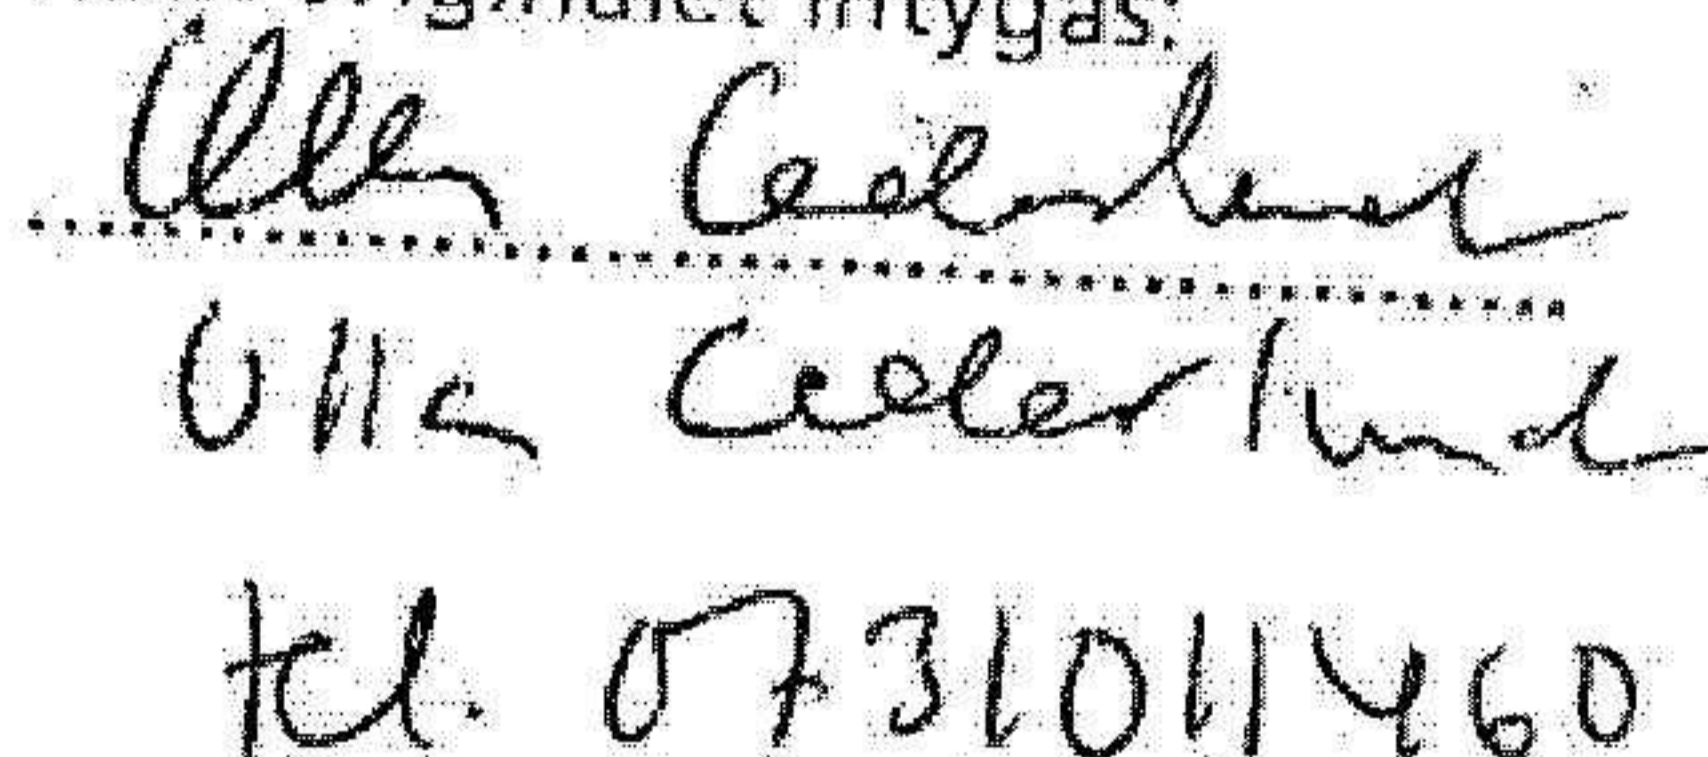 originalet intygas:
Ulla Cederlund
Ulla Cederlund
tel. 0731011460